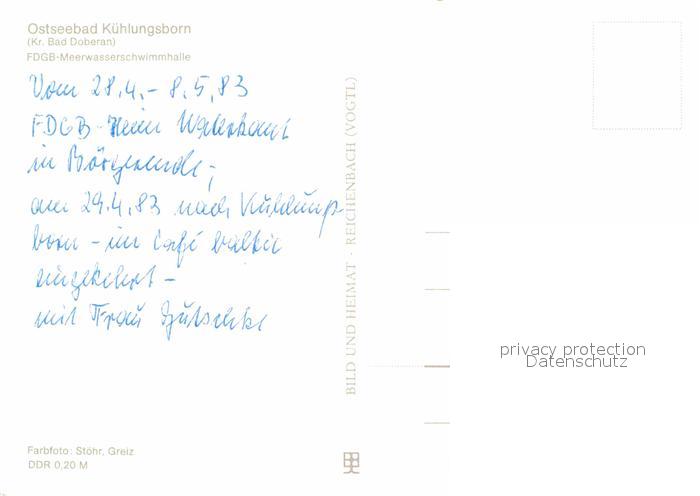 Ostseebad Kühlungsborn
(Kr. Bad Doberan)
FDGB-Meerwasserschwimmhalle
Vom 28.4.- 8.5.83
FDGB-Heim Waterkant
in Börgerende;
am 29.4.83 nach Kühlungs-
born - im Café baltic
eingekehrt -
mit Frau
BILD UND HEIMAT · REICHENBACH (VOGTL)
privacy protection
Datenschutz
Farbfoto: Stöhr, Greiz
DDR 0,20 M